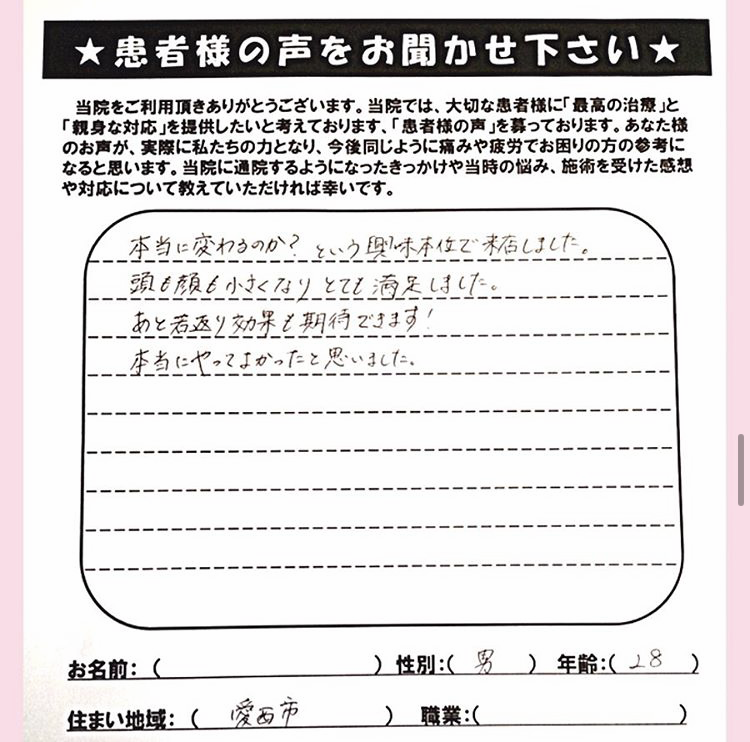 ★患者様の声をお聞かせ下さい★
当院をご利用頂きありがとうございます。当院では、大切な患者様に「最高の治療」と
「親身な対応」を提供したいと考えております、「患者様の声」を募っております。あなた様
のお声が、実際に私たちの力となり、今後同じように痛みや疲労でお困りの方の参考に
なると思います。当院に通院するようになったきっかけや当時の悩み、施術を受けた感想
や対応について教えていただければ幸いです。
本当に変わるのか?という興味本位で来店しました。
頭も顔も小さくなりとても満足しました。
あと若返り効果も期待できます!
本当にやってよかったと思いました。
お名前:( ) 性別:( 男 ) 年齢:( 28 )
住まい地域:( 愛西市 ) 職業:( )